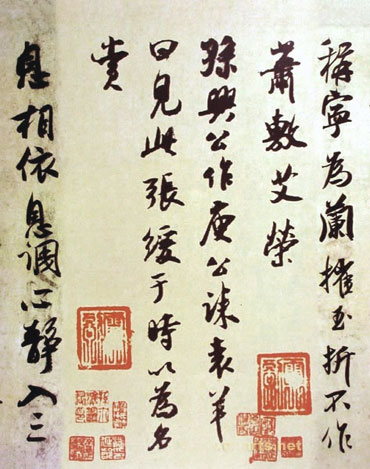 稱寧為蘭摧玉折不作
蕭敷艾榮
孫興公作庾公誄袁羊
曰見此張緩于時以為名
賞
息相依息調心靜入三
net